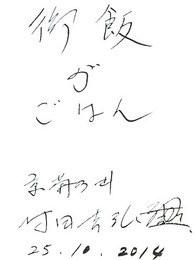 御飯
が
ごはん
京菊乃井
村田吉弘
25.10.2014